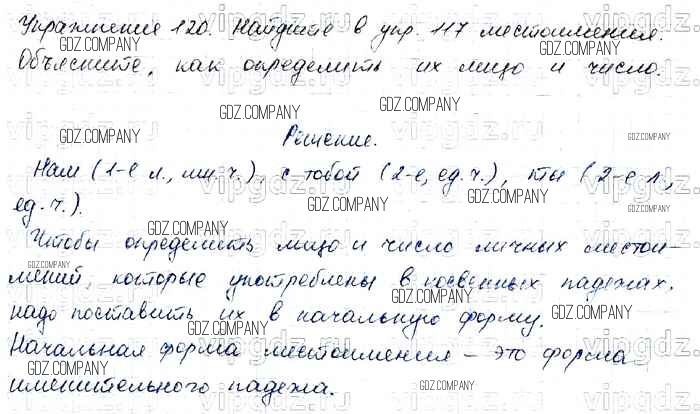 Упражнение 120. Найдите в упр. 117 местоимения.
Объясните, как определить их лицо и число.
Решение.
Нам (1-е л., мн. ч.), с тобой (2-е, ед. ч.), ты (2-е л.,
ед. ч.).
Чтобы определить лицо и число личных местои-
мений, которые употреблены в косвенных падежах,
надо поставить их в начальную форму.
Начальная форма местоимения – это форма
именительного падежа.